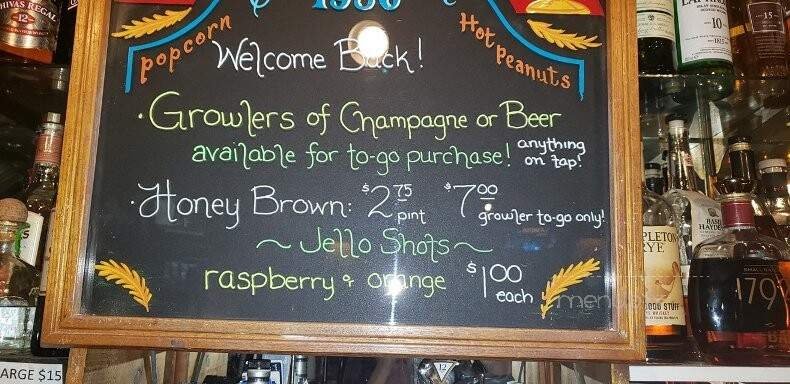 HIVAS REGAL
12
1936
popcorn
Hot Peanuts
Welcome Back!
· Growlers of Champagne or Beer
available for to-go purchase! anything on tap!
· Honey Brown: $2.75 pint $7.00 growler to-go only!
~ Jello Shots ~
raspberry & orange $1.00 each
10
15
BASIL HAYDE
PLETON
RYE
GOOD STUFF
SMALL BA
179
ARGE $15
12